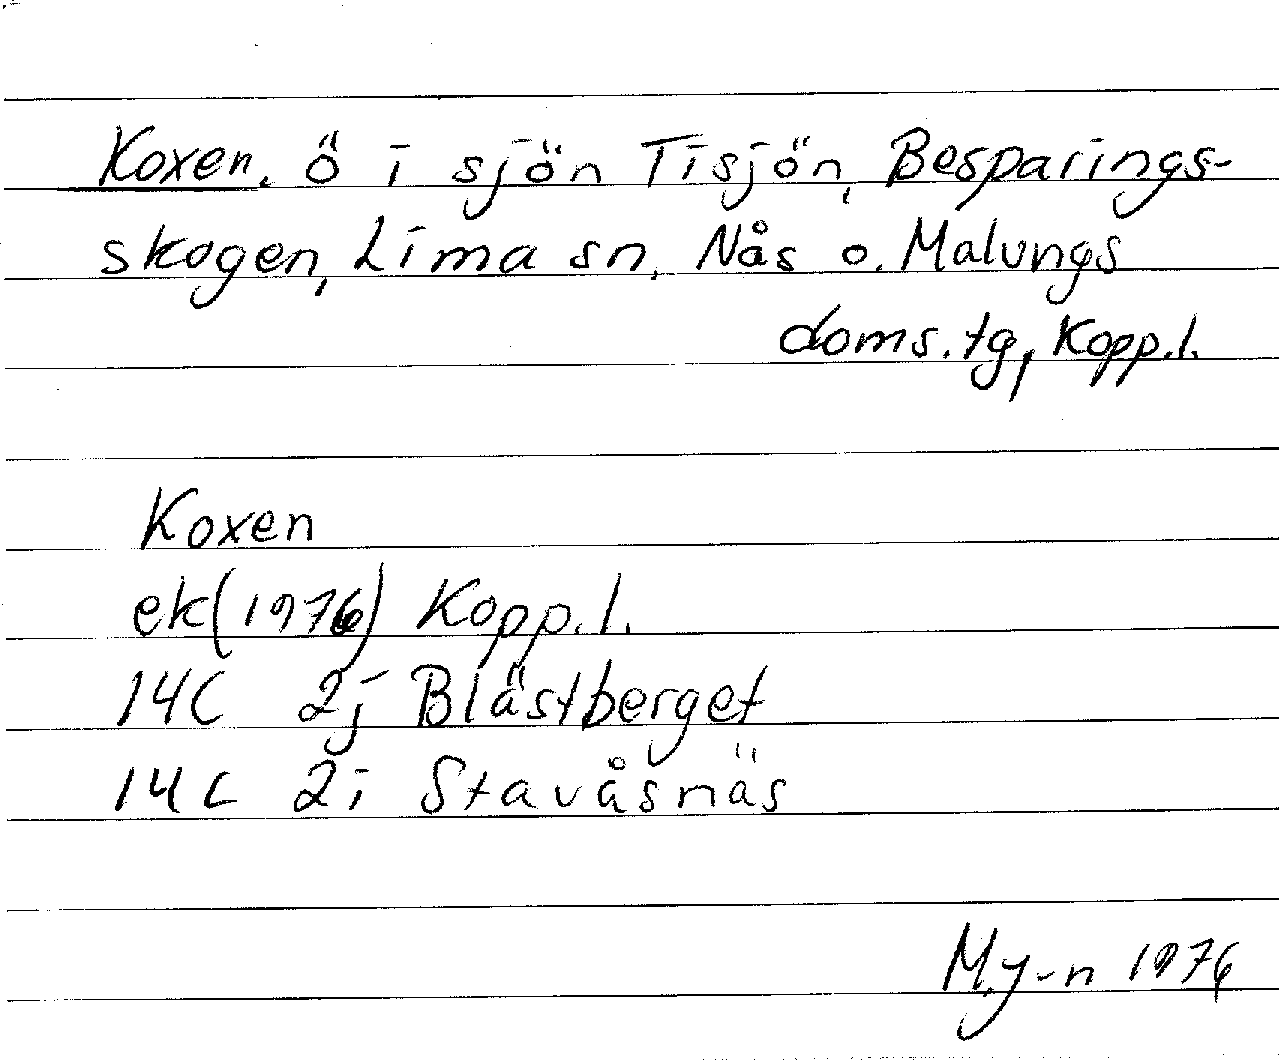 Koxen. ö i sjön Tisjön, Besparings-
skogen, Lima sn. Nås o. Malungs
doms.tg, Kopp.l.
Koxen
ek(1976) Kopp.l.
14C 2j Blästberget
14C 2i Stavåsnäs
M.y-n 1976